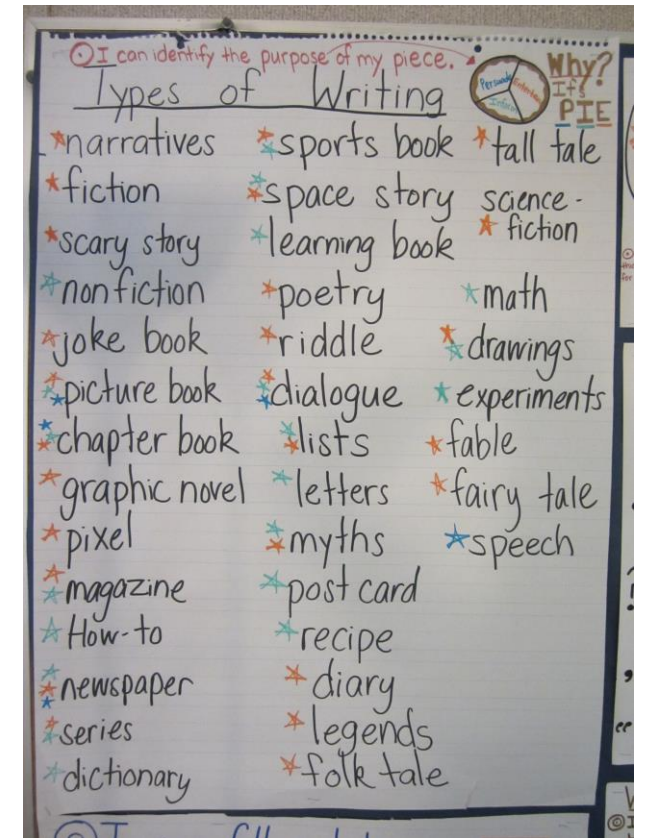 I can identify the purpose of my piece.
Types of Writing
Persuade
Entertain
Inform
Why?
It's
PIE
narratives
fiction
scary story
nonfiction
joke book
picture book
chapter book
graphic novel
pixel
magazine
How-to
newspaper
series
dictionary
sports book
space story
learning book
poetry
riddle
dialogue
lists
letters
myths
post card
recipe
diary
legends
folk tale
tall tale
science-
fiction
math
drawings
experiments
fable
fairy tale
speech